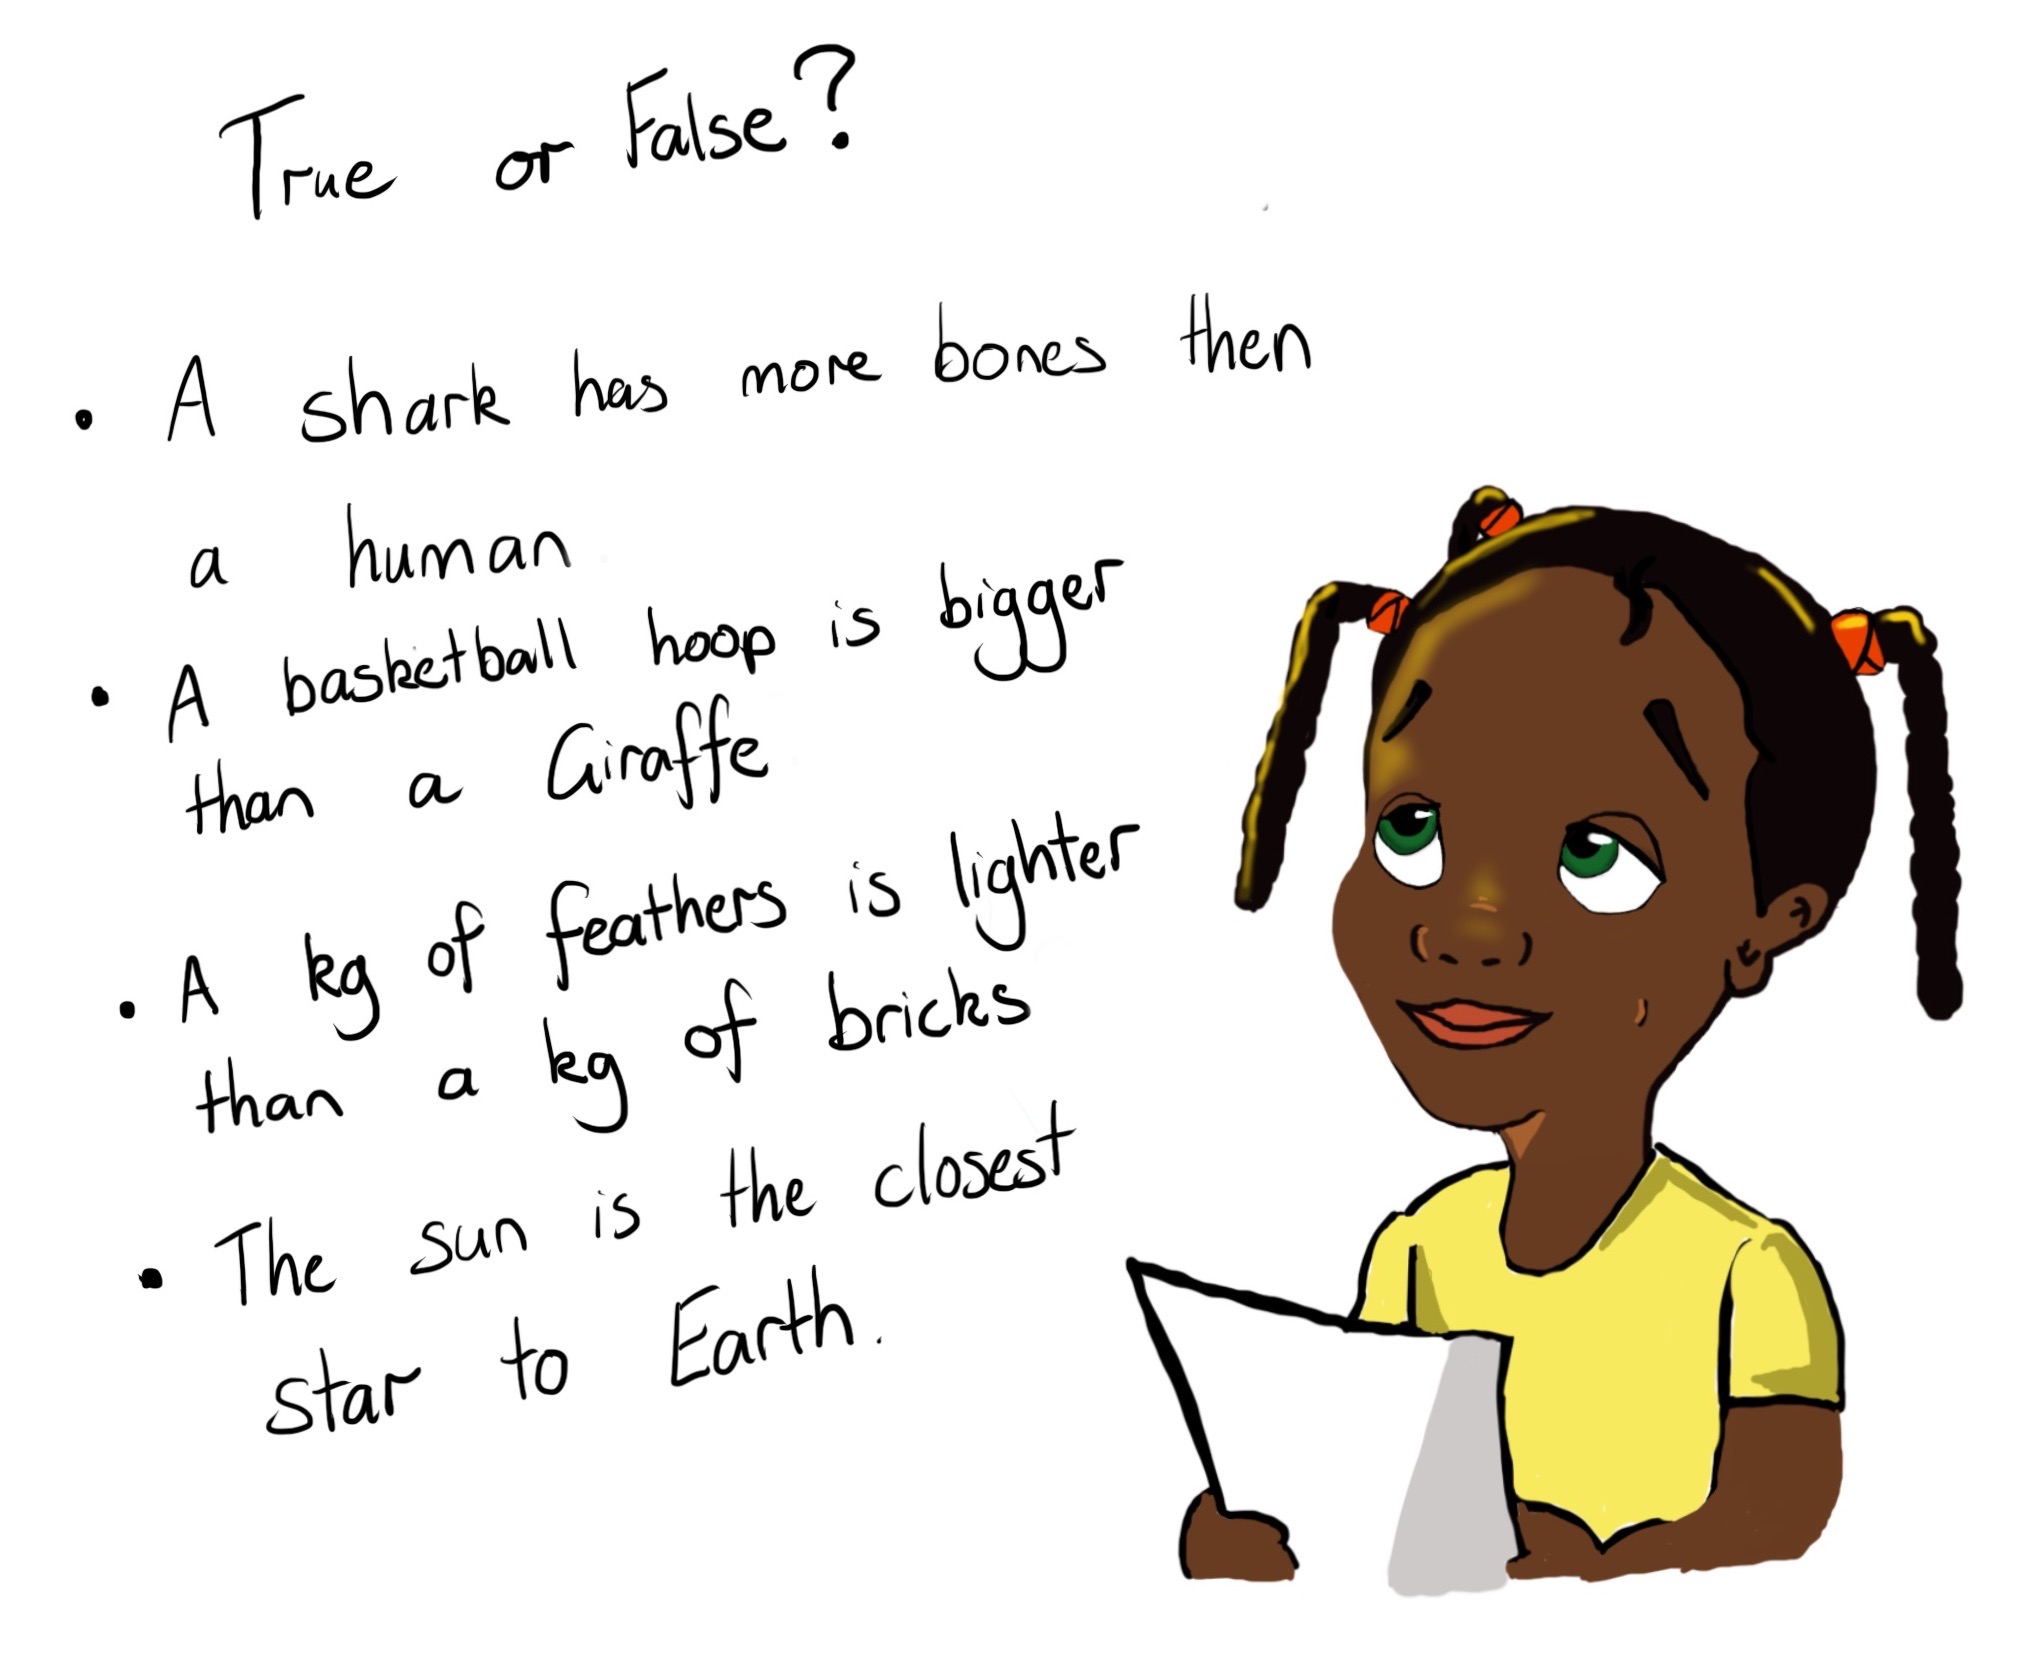 True or False?
• A shark has more bones then
a human
• A basketball hoop is bigger
than a Giraffe
• A kg of feathers is lighter
than a kg of bricks
• The sun is the closest
star to Earth.